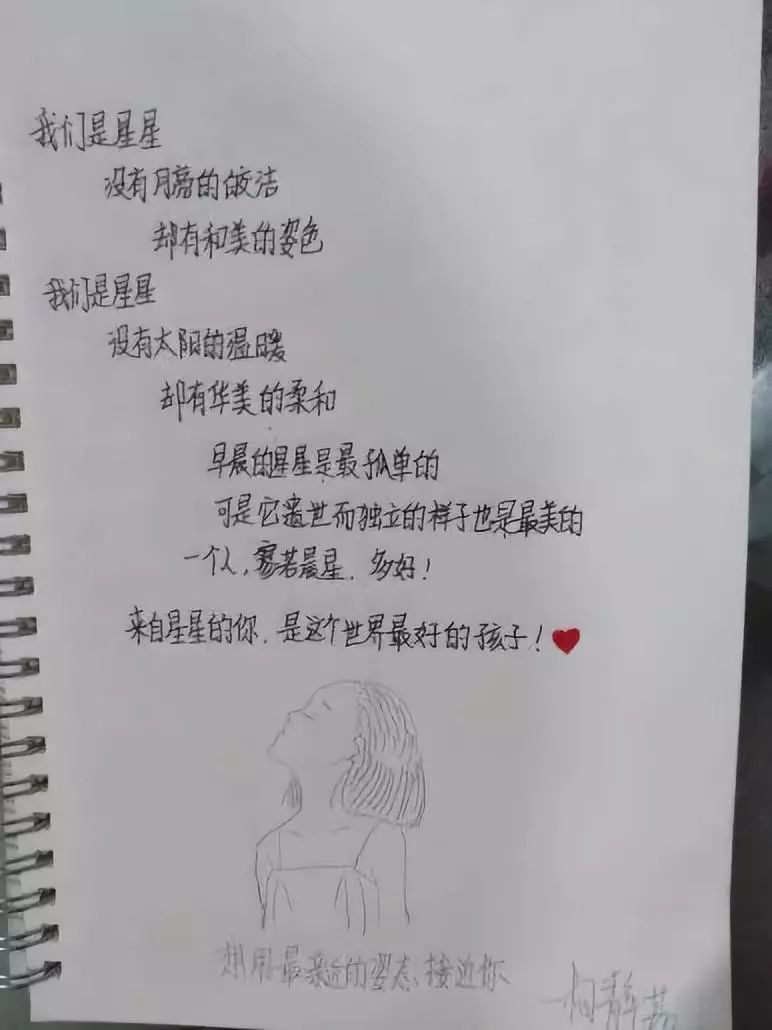 我们是星星
没有月亮的皎洁
却有和美的姿色
我们是星星
没有太阳的温暖
却有华美的柔和
早晨的星星是最孤单的
可是它遗世而独立的样子也是最美的
一个人,寥若晨星,多好!
来自星星的你,是这个世界最好的孩子!
想用最亲近的姿态,接近你